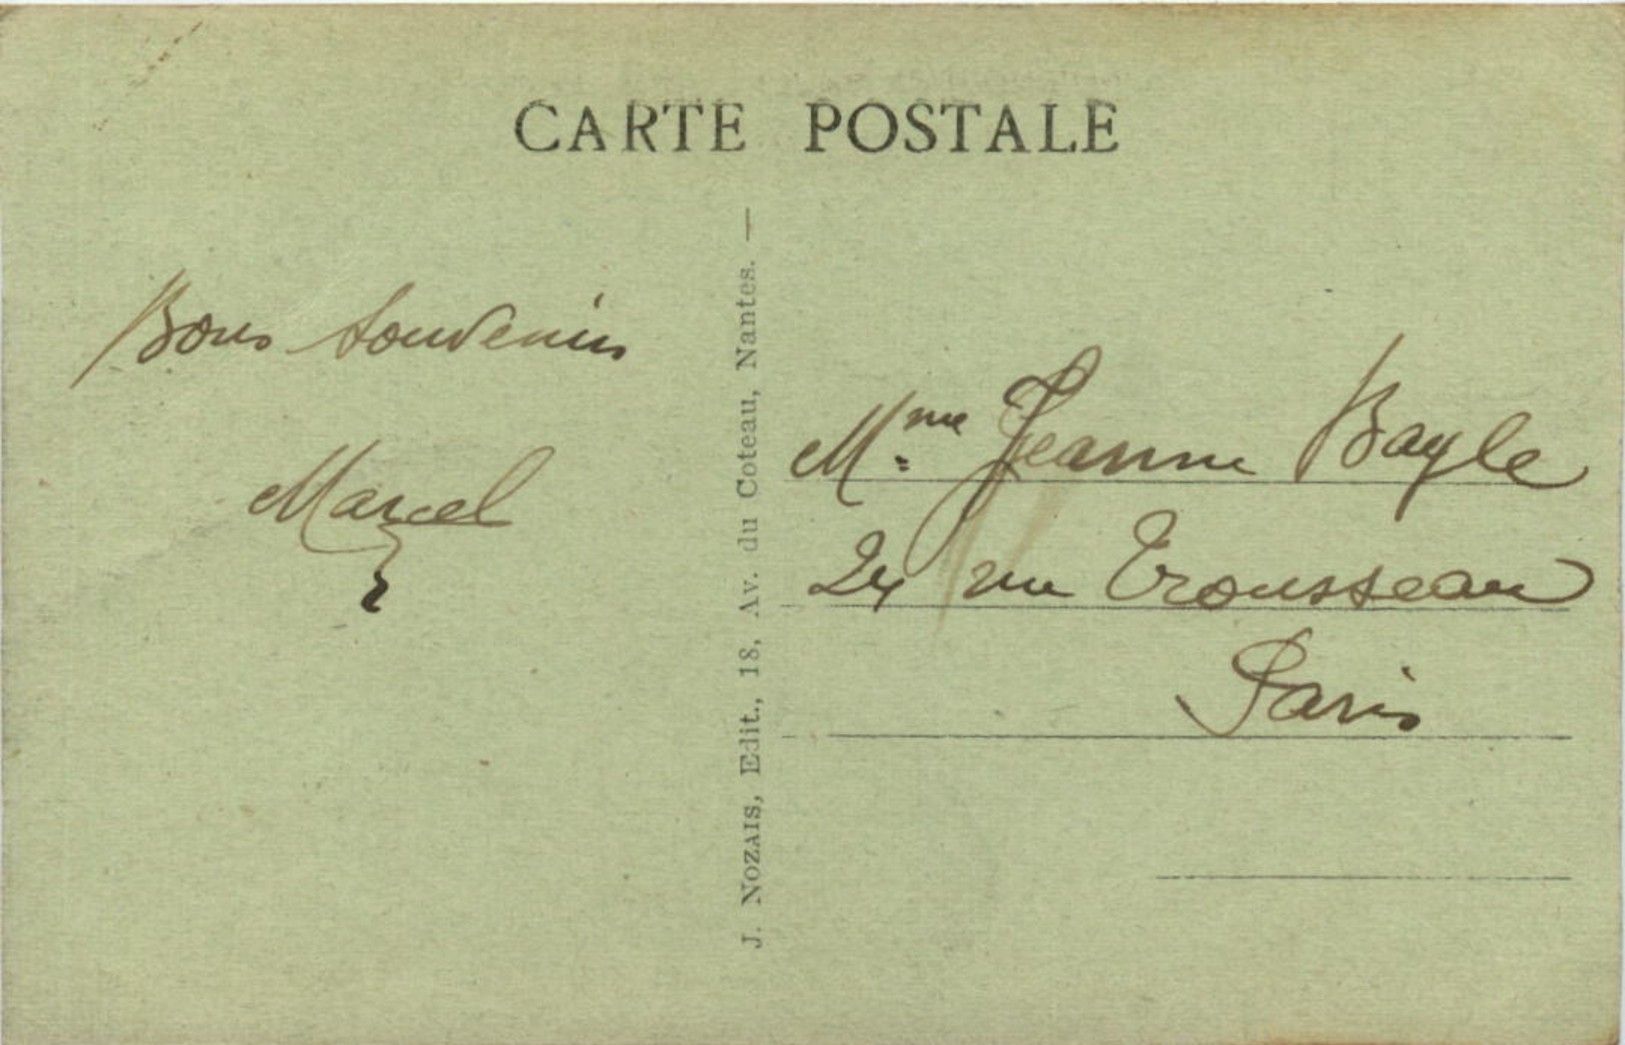 CARTE POSTALE
Bons souvenirs
Marcel
J. NOZAIS, Edit., 18, Av. du Coteau, Nantes. —
Mme Jeanne Bayle
24 rue Trousseau
Paris